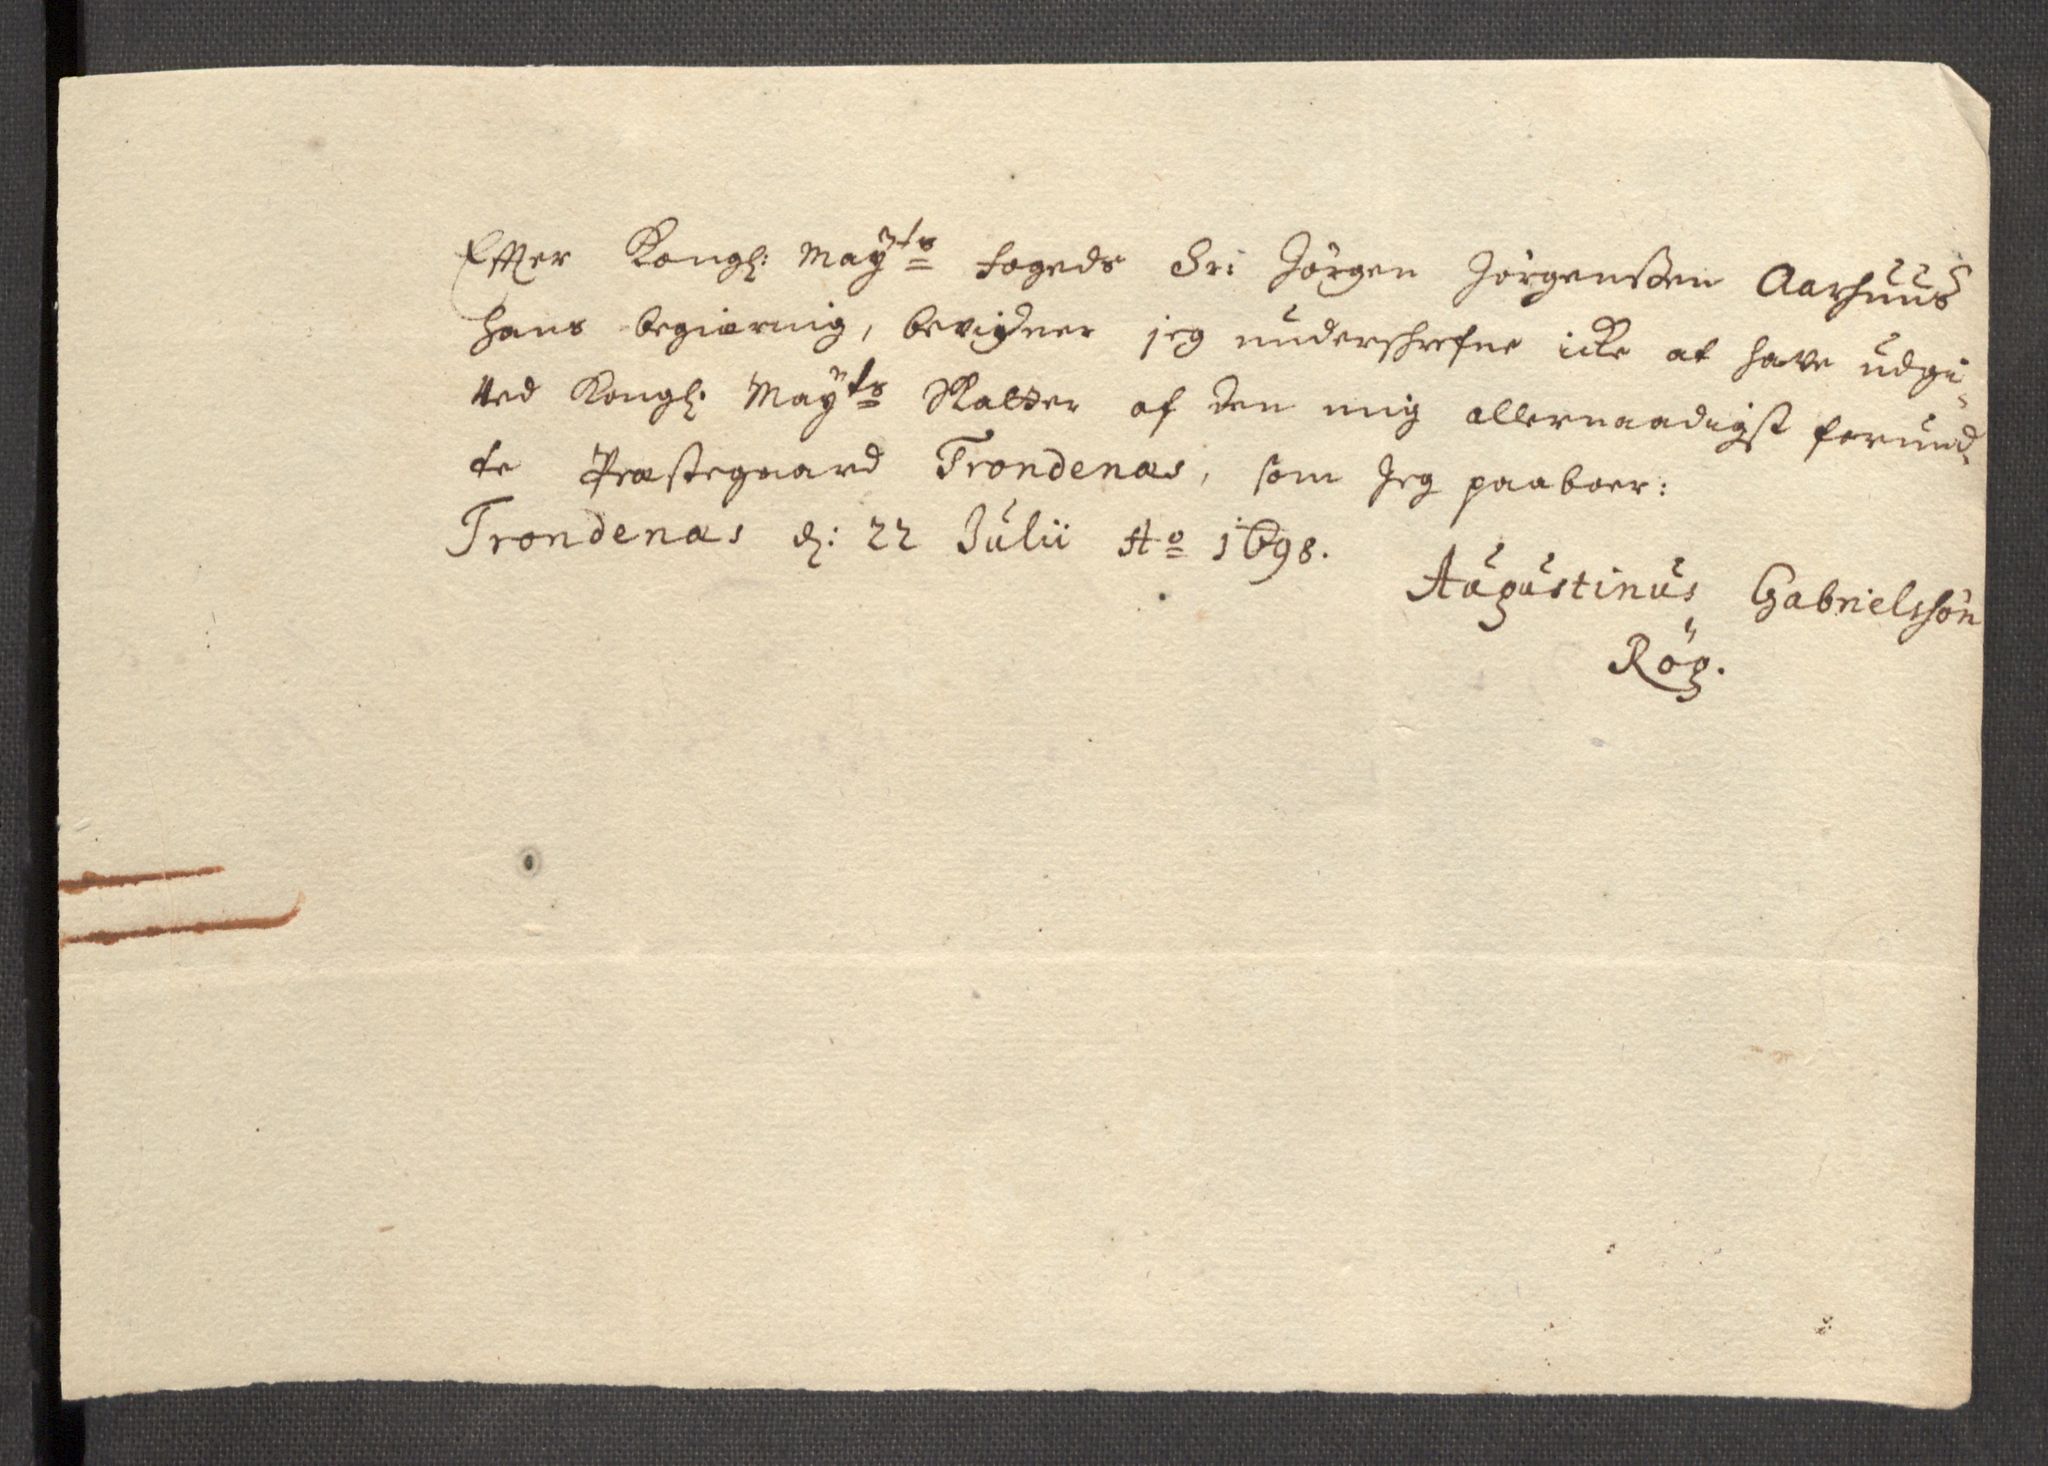 Effter Kongl: Mayts fogeds Sr: Jørgen Jørgenssen Aarhuus
hans begiæring, bevidner jeg underschrefne icke at have udgi-
ved Kongl: Mayts Skatter af den mig allernaadigst forund-
te Præstegaard Trondenæs, som jeg paaboer:
Trondenæs d: 22 Julii Ao 1698.
Augustinus Gabrielssøn
Røg.